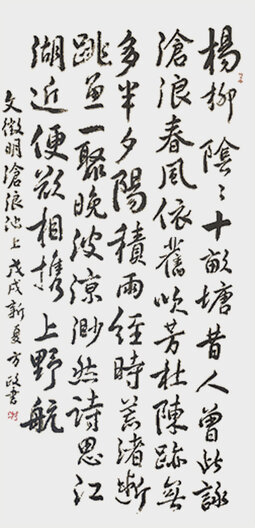 楊柳陰〻十畝塘昔人曾此詠
滄浪春風依舊吹芳杜陳跡無
多半夕陽積雨經時荒渚断
跳魚一聚晚波涼渺然詩思江
湖近便欲相携上野航
文徵明滄浪池上 戊戌新夏方政書